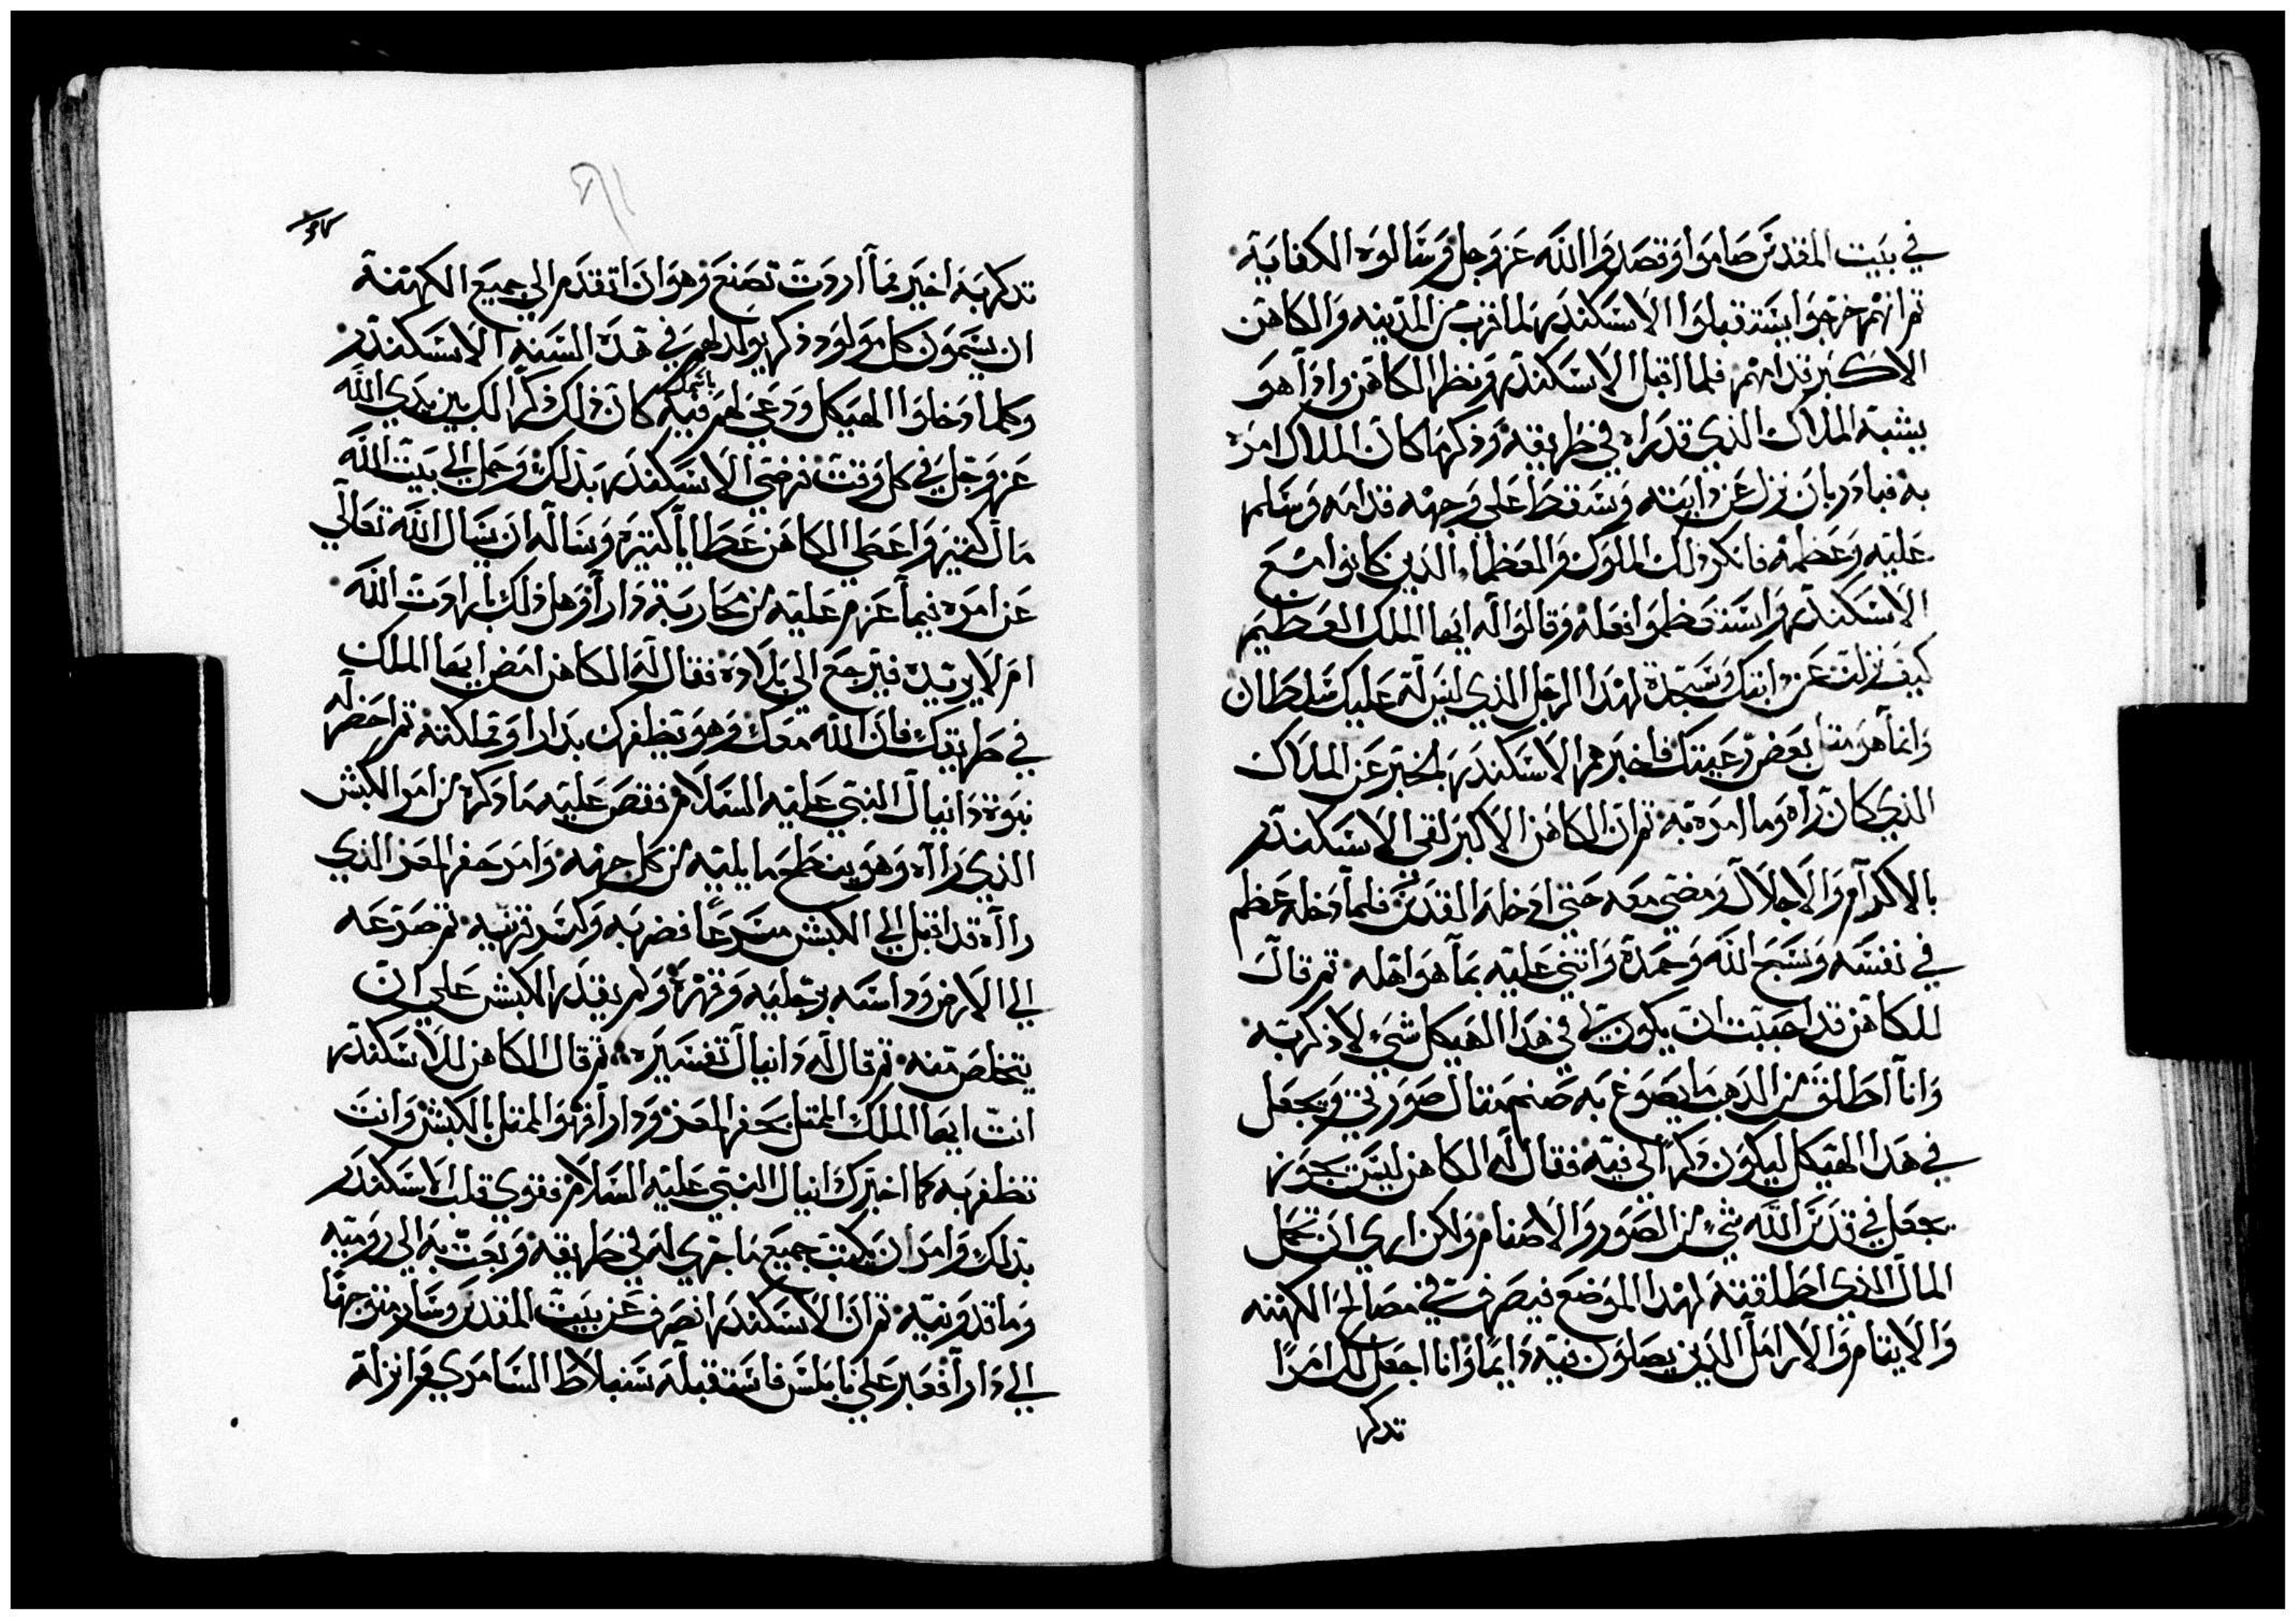 في بيت المقدس صاموا وقصدوا الله عز وجل وسالوه الكفاية
ثم انهم خرجوا يستقبلوا الاسكندر لما قرب من المدينه والكاهن
الاكبر قدامهم فلما اقبل الاسكندر ونظر الكاهن واذا هو
بشبه الملاك الذي قد راه في طريقه وذكر ما كان الملاك امره
به فبادر بان نزل عن دابته وسقط على وجهه قدامه وسلم
عليه وعظمه فانكر ذلك الملوك والعظماء الذين كانوا مع
الاسكندر واستقظموا فعله وقالوا له ايها الملك العظيم
كيف نزلت عن دابتك وسجدة لهدا الرجل الذي ليس له عليك سلطان
وانما هو مثل بعض رعيتك فاخبرهم الاسكندر بالخبر عن الملاك
الذي كان راه وما امره به ثم ان الكاهن الاكبر لقى الاسكندر
بالاكرام والاجلال ومضى معه حتى ادخله القدس فلما دخله عظم
في نفسه وسبح الله وحمده واثنى عليه بما هو اهله ثم قال
للكاهن قد احببت ان يكون لي في هدا الهيكل شي لاذكر به
وانا اطلق من الدهب ما يصوغ به صنم مثال صورتي ويجعل
في هدا الهيكل ليكون ذكرا لي فيه فقال له الكاهن ليس يجوز
يجعل في قدس الله شي من الصور والاصنام ولكن ارى ان تجعل
المال الذي اطلقته لهدا الموضع فيصرف في مصالح الكهنه
والايتام والارامل الذين يصلون فيه دايما وانا اجعل لك امرا
تدكر
تدكر به اخير مما اردت تصنع وهو ان اتقدم الى جميع الكهنة
ان يسمون كل مولود ذكر يولد لهم في هده السنه الاسكندر
وكلما دخلوا الهيكل ودعي لهم فيه باسمك كان ذلك ذكرا لك بين يدي الله
عز وجل في كل وقت فرضي الاسكندر بذلك وحمل الى بيت الله
مال كثير واعطى الكاهن عطايا كثيره وساله ان يسال الله تعالى
عن امره فيما عزم عليه من محاربة دارا وهل ذلك بارادت الله
ام لا يريده فيرجع الى بلاده فقال له الكاهن امض ايها الملك
في طريقك فان الله معك وهو يظفرك بدارا ومملكته ثم احضر له
نبوة دانيال النبي عليه السلام فقص عليه ما دكره من امر الكبش
الذي رااه وهو ينطح ما يليه من كل جهه وامر جفر المعز الذي
رااه قد اقبل الى الكبش مسرعا فضربه وكسر قرنيه ثم صرعه
الى الارض وداسه برجليه وقهره ولم يقدر الكبش على ان
يتخلص منه ثم قال له دانيال تفسيره ثم قال الكاهن للاسكندر
انت ايها الملك الممثل بجفر المعز ودارا فهو الممثل بالكبش وانت
تظفر به كما اخبرك دانيال النبي عليه السلام فقوي قلب الاسكندر
بذلك وامر ان يكتب جميع ما جرى له في طريقه وبعث به الى روميه
وماقدونيه ثم ان الاسكندر انصرف عن بيت المقدس وسار متوجها
الى دارا فعبر على نابلس فاستقبله سنبلاط السامري وانزله